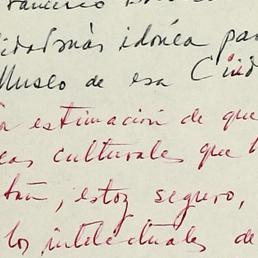 Francisco
idad más idónea par
Museo de esa Ciud
a estimación de que
as culturales que
tan, estoy seguro,
los intelectuales de